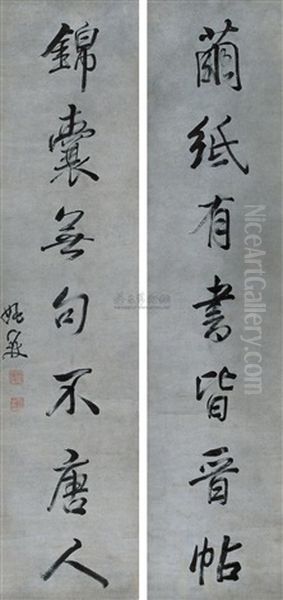 繭紙有書皆晉帖
錦囊無句不唐人
姚鼐
NiceArtGallery.com